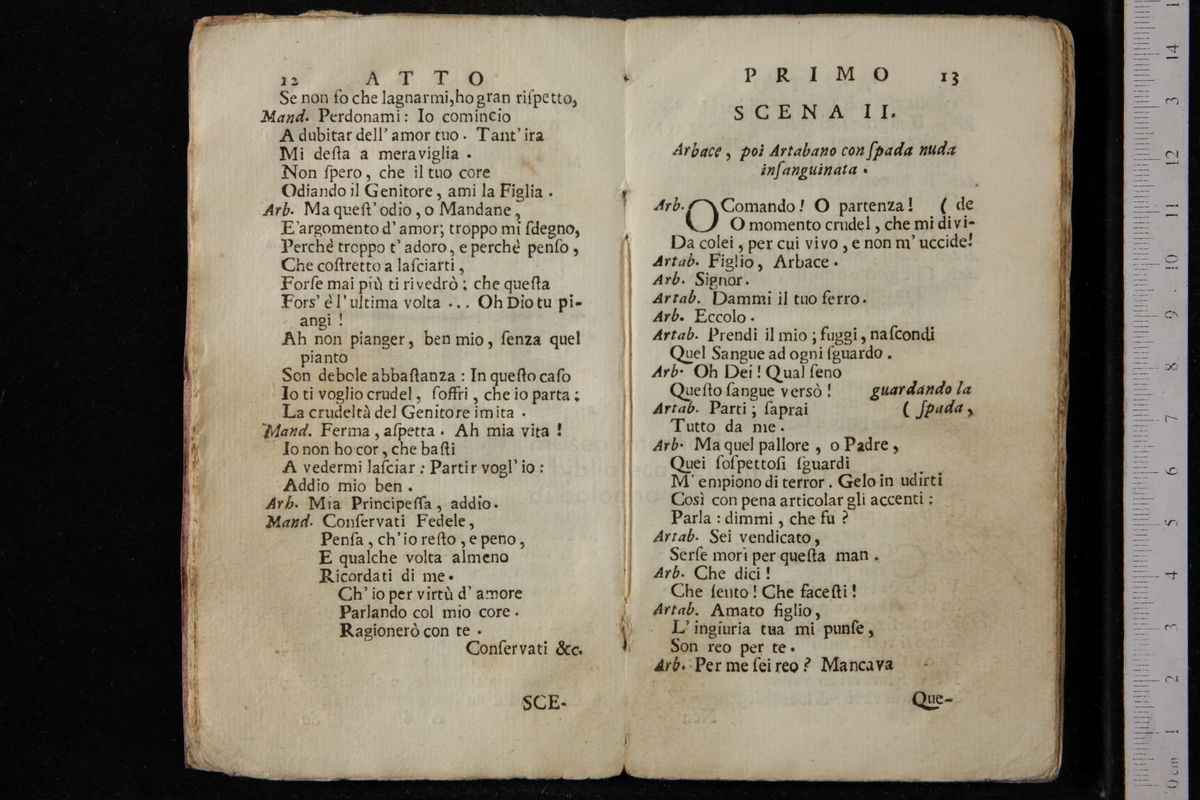 12 ATTO
Se non ſo che lagnarmi, ho gran riſpetto,
Mand. Perdonami: Io comincio
A dubitar dell' amor tuo. Tant' ira
Mi deſta a meraviglia.
Non ſpero, che il tuo core
Odiando il Genitore, ami la Figlia.
Arb. Ma queſt' odio, o Mandane,
E' argomento d' amor; troppo mi ſdegno,
Perchè troppo t' adoro, e perchè penſo,
Che coſtretto a laſciarti,
Forſe mai più ti rivedrò; che queſta
Fors' è l' ultima volta ... Oh Dio tu pi-
angi!
Ah non pianger, ben mio, ſenza quel
pianto
Son debole abbaſtanza: In queſto caſo
Io ti voglio crudel, ſoffri, che io parta;
La crudeltà del Genitore imita.
Mand. Ferma, aſpetta. Ah mia vita!
Io non ho cor, che baſti
A vedermi laſciar: Partir vogl' io:
Addio mio ben.
Arb. Mia Principeſſa, addio.
Mand. Conſervati Fedele,
Penſa, ch' io reſto, e peno,
E qualche volta almeno
Ricordati di me.
Ch' io per virtù d' amore
Parlando col mio core.
Ragionerò con te.
Conſervati &c.
SCE-
PRIMO 13
SCENA II.
Arbace, poi Artabano con ſpada nuda
inſanguinata.
Arb. O Comando! O partenza! ( de
O momento crudel, che mi divi-
Da colei, per cui vivo, e non m' uccide!
Artab. Figlio, Arbace.
Arb. Signor.
Artab. Dammi il tuo ferro.
Arb. Eccolo.
Artab. Prendi il mio; fuggi, naſcondi
Quel Sangue ad ogni ſguardo.
Arb. Oh Dei! Qual ſeno
Queſto ſangue versò! guardando la
Artab. Parti; ſaprai ( ſpada,
Tutto da me.
Arb. Ma quel pallore, o Padre,
Quei ſoſpettoſi ſguardi
M' empiono di terror. Gelo in udirti
Così con pena articolar gli accenti:
Parla: dimmi, che fu?
Artab. Sei vendicato,
Serſe morì per queſta man.
Arb. Che dici!
Che ſento! Che faceſti!
Artab. Amato figlio,
L' ingiuria tua mi punſe,
Son reo per te.
Arb. Per me ſei reo? Mancava
Que-
0 cm 1 2 3 4 5 6 7 8 9 10 11 12 13 14